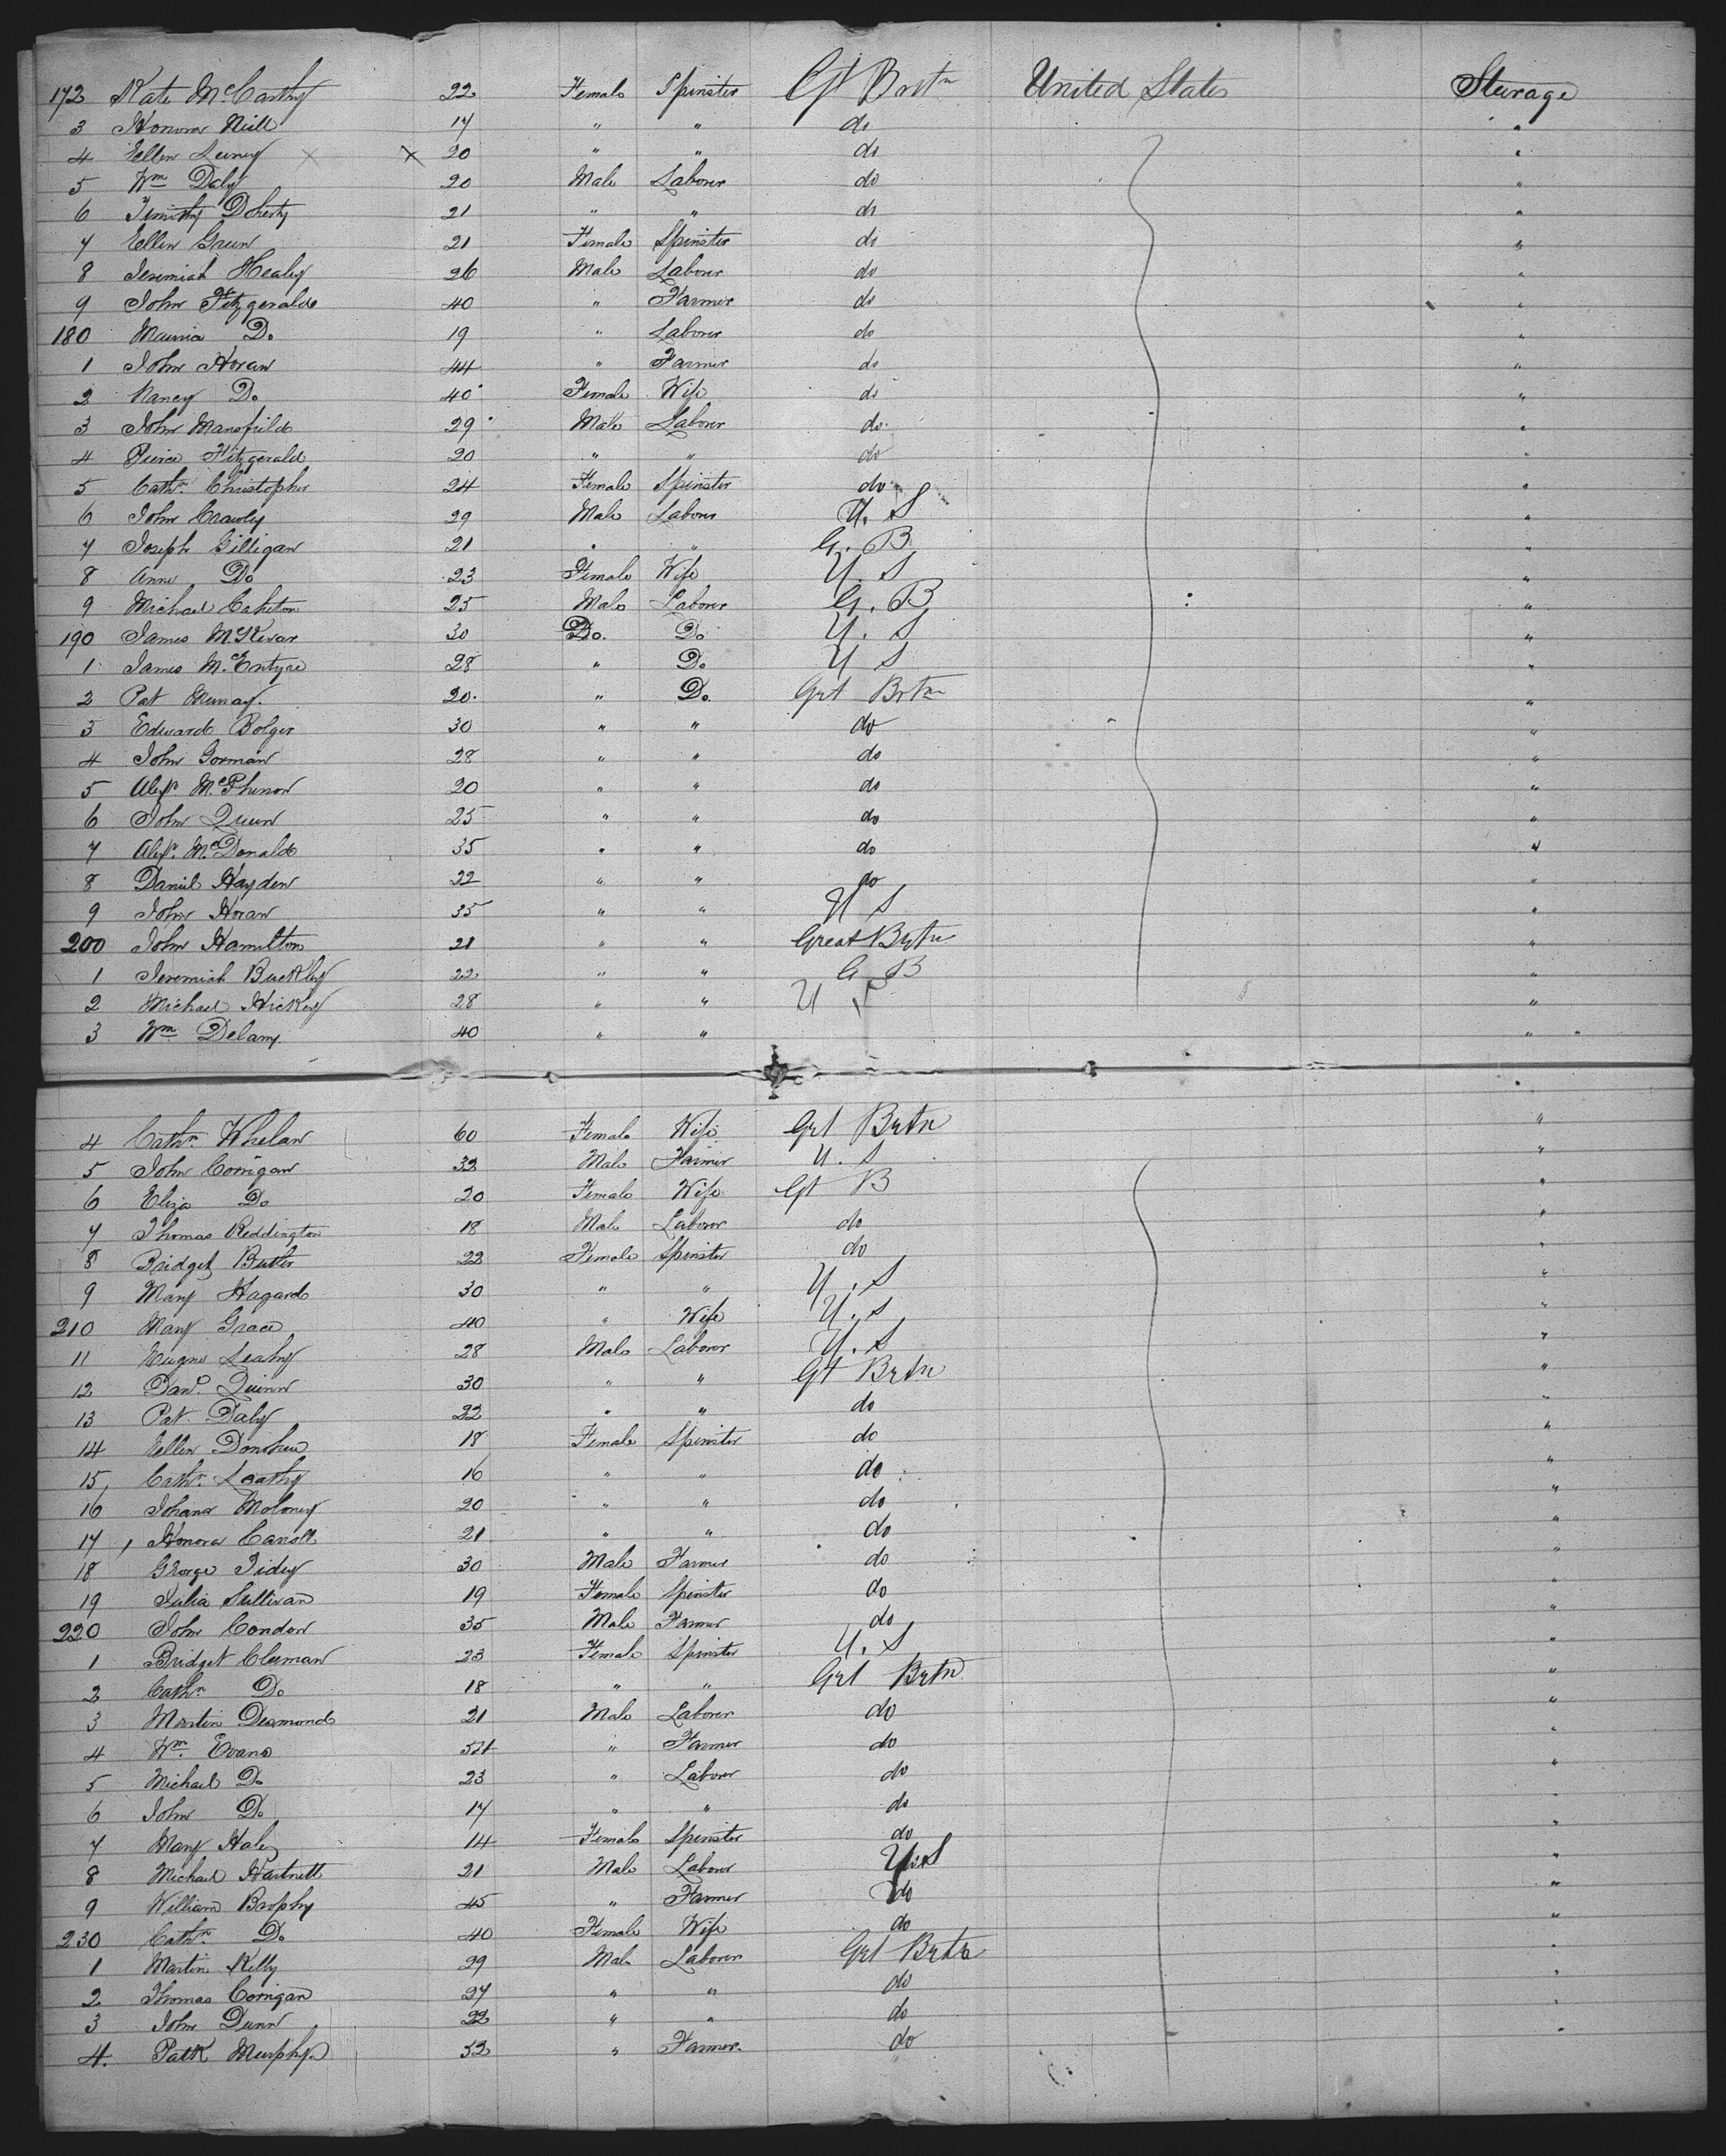 172 Kate McCarthy 22 Female Spinster Gt Brtn United States Sturage
3 Honora Neill 17 " " do "
4 Ellen × × 20 " " do "
5 Wm Daly 20 Male Laborer do "
6 Timothy Doherty 21 " " do "
7 Ellen Green 21 Female Spinster do "
8 Jeremiah Healy 26 Male Laborer do "
9 John Fitzgerald 40 " Farmer do "
180 Maurice Do 19 " Laborer do "
1 John Horan 44 " Farmer do "
2 Nancy Do 40 Female Wife do "
3 John Mansfield 29 Male Laborer do "
4 Pierce Fitzgerald 20 " " do "
5 Cathn. Christopher 24 Female Spinster do "
6 John Crawly 29 Male Laborer U. S "
7 Joseph Gilligan 21 " " G. B "
8 Anne Do 23 Female Wife U. S "
9 Michael 25 Male Laborer G. B "
190 James 30 Do. Do U. S "
1 James McEntyre 28 " Do U S "
2 Pat Murray. 20. " Do Grt Brtn "
3 Edward Bolger 30 " " do "
4 John Gorman 28 " " do "
5 Alexr. 20 " " do "
6 John Quinn 25 " " do "
7 Alexr. McDonald 35 " " do "
8 Daniel Hayden 22 " " do "
9 John Horan 35 " " U S "
200 John Hamilton 21 " " Great Brtn "
1 Jeremiah Buckley 22 " " G B "
2 Michael Hickey 28 " " U S "
3 Wm Delany. 40 " " "
4 Cathn. Whelan 60 Female Wife Grt Brtn "
5 John Corrigan 32 Male Farmer U. S "
6 Eliza Do 20 Female Wife Gt B "
7 Thomas Reddington 18 Male Laborer do "
8 Bridget Butler 22 Female Spinster do "
9 Mary Hagard 30 " " U. S "
210 Mary Grace 40 " Wife U. S "
11 Eugene Leahy 28 Male Laborer U. S "
12 Danl. Quinn 30 " " Gt Brtn "
13 Pat. Daly 22 " " do "
14 Ellen Donohue 18 Female Spinster do "
15 Cathn. Leahy 16 " " do "
16 Johana Moloney 20 " " do "
17 Honora Carroll 21 " " do "
18 George Tidey 30 Male Farmer do "
19 Julia Sullivan 19 Female Spinster do "
220 John Condon 35 Male Farmer do "
1 Bridget Cleeman 23 Female Spinster U. S "
2 Cathn. Do 18 " " Grt Brtn "
3 Martin Desmond 21 Male Laborer do "
4 Wm. Evans 54 " Farmer do "
5 Michael Do 23 " Laborer do "
6 John Do 17 " " do "
7 Mary Haley 14 Female Spinster do "
8 Michael Hartnett 21 Male Laborer U.S "
9 William Brophy 45 " Farmer do "
230 Cathn. Do 40 Female Wife do "
1 Martin Kelly 29 Male Laborer Grt Brtn "
2 Thomas Corrigan 27 " " do "
3 John Dunn 22 " " do "
4. Patk Murphy. 52 " Farmer. do